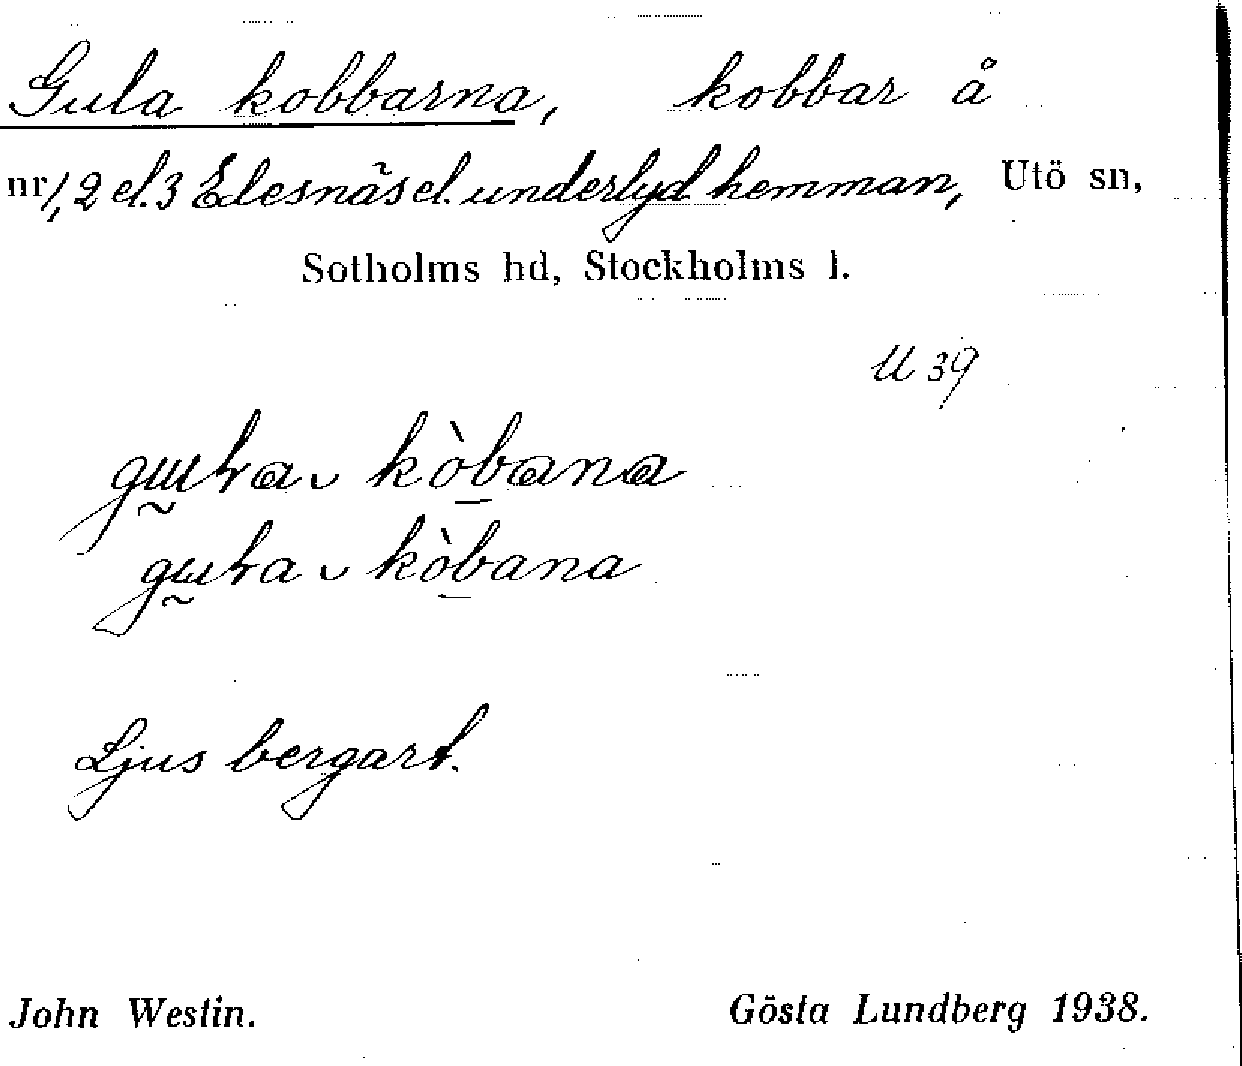 Gula kobbarna, kobbar å
nr 1, 2 el. 3 Edesnäs el. underlyd hemman, Utö sn,
Sotholms hd, Stockholms l.
U 39
kòbana
kòbana
Ljus bergart.
John Westin. Gösta Lundberg 1938.